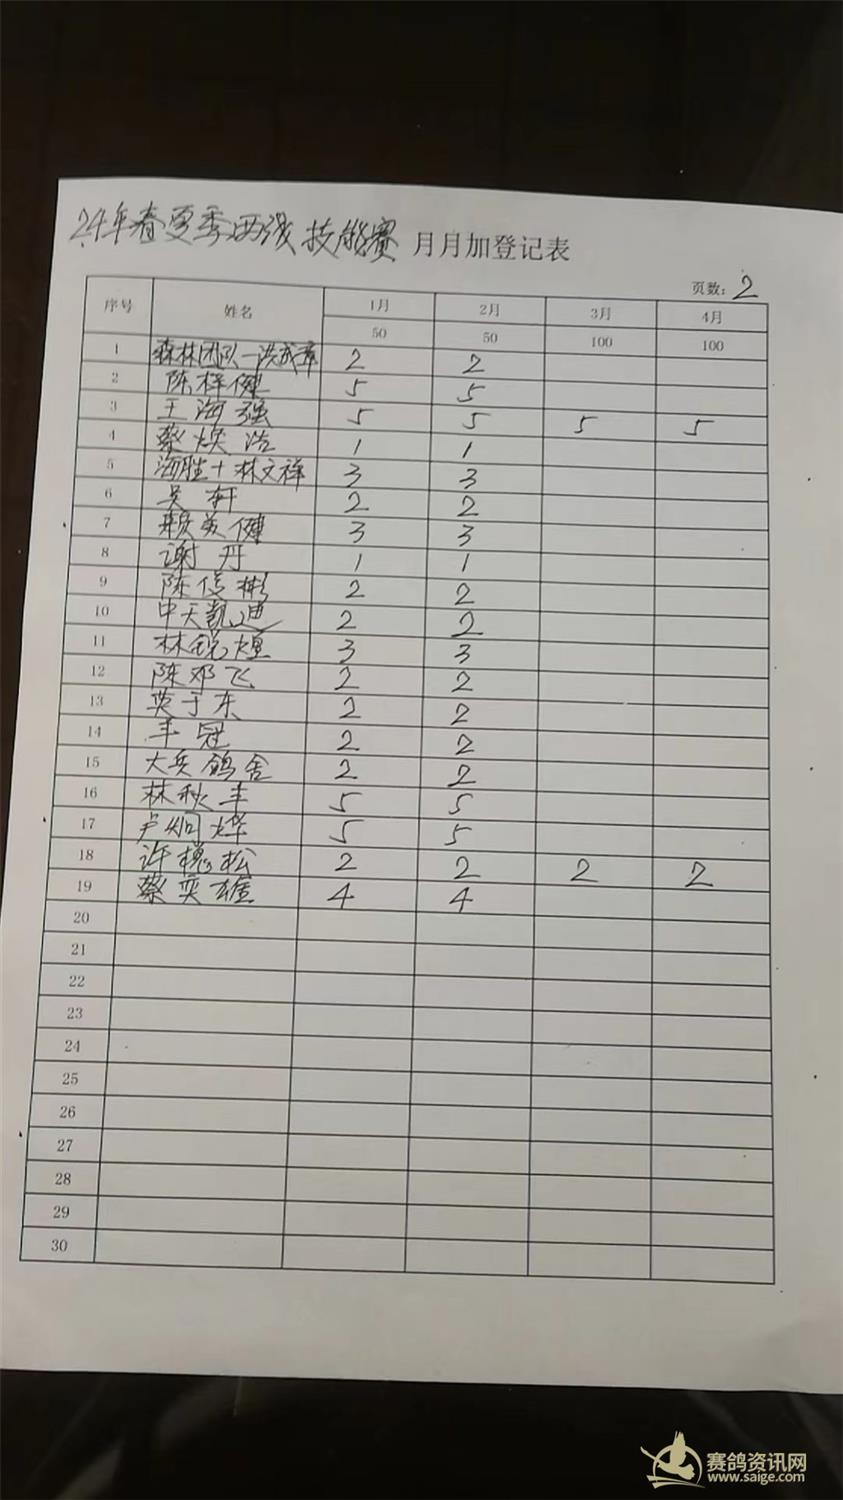 24年春夏季西线技能赛 月月加登记表
页数: 2
序号 姓名 1月 2月 3月 4月
50 50 100 100
1 森林团队一洪成章 2 2
2 陈梓健 5 5
3 王海强 5 5 5 5
4 蔡焕浩 1 1
5 海胜+林文祥 3 3
6 吴轩 2 2
7 赖英健 3 3
8 谢丹 1 1
9 陈俊彬 2 2
10 中天凯迪 2 2
11 林锐煌 3 3
12 陈邓飞 2 2
13 黄于东 2 2
14 丰冠 2 2
15 大兵鸽舍 2 2
16 林秋丰 5 5
17 卢炯烨 5 5
18 许松 2 2 2 2
19 蔡奕雄 4 4
20
21
22
23
24
25
26
27
28
29
30
赛鸽资讯网
www.saige.com